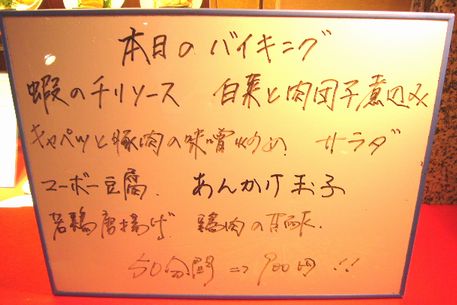 本日のバイキング
蝦のチリソース 白菜と肉団子煮込み
キャベツと豚肉の味噌炒め サラダ
マーボー豆腐 あんかけ玉子
若鶏唐揚げ 鶏肉の甘酢
50分間 ⇒ 900円!!